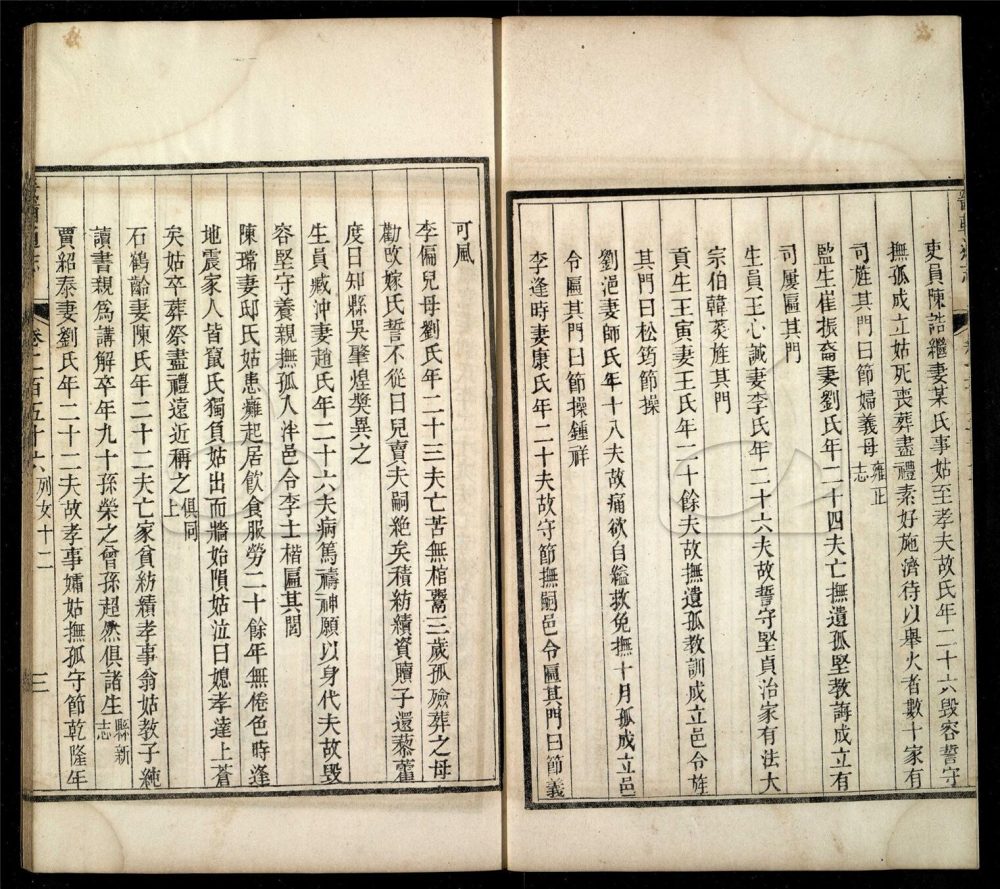 吏員陳誥繼妻某氏事姑至孝夫故氏年二十六毀容誓守
撫孤成立姑死喪葬盡禮素好施濟待以舉火者數十家有
司旌其門曰節婦義母雍正志
監生崔振裔妻劉氏年二十四夫亡撫遺孤堅教誨成立有
司屢匾其門
生員王心誠妻李氏年二十六夫故誓守堅貞治家有法大
宗伯韓菼旌其門
貢生王寅妻王氏年二十餘夫故撫遺孤教訓成立邑令旌
其門曰松筠節操
劉浥妻師氏年十八夫故痛欲自縊救免撫十月孤成立邑
令匾其門曰節操鍾祥
李逢時妻康氏年二十夫故守節撫嗣邑令匾其門曰節義
可風
李偏兒母劉氏年二十三夫亡苦無棺鬻三歲孤殮葬之母
勸改嫁氏誓不從曰兒賣夫嗣絶矣積紡績資贖子還藜藿
度日知縣吳肇煌獎異之
生員臧沖妻趙氏年二十六夫病篤禱神願以身代夫故毀
容堅守養親撫孤入泮邑令李士楷匾其閭
陳瑺妻邸氏姑患癱起居飲食服勞二十餘年無倦色時逢
地震家人皆竄氏獨負姑出而牆始隕姑泣曰媳孝達上蒼
矣姑卒葬祭盡禮遠近稱之俱同上
石鶴齡妻陳氏年二十二夫亡家貧紡績孝事翁姑教子純
讀書親爲講解卒年九十孫榮之曾孫超然俱諸生縣新志
賈紹泰妻劉氏年二十二夫故孝事孀姑撫孤守節乾隆年
卷二百五十六 列女十二 三